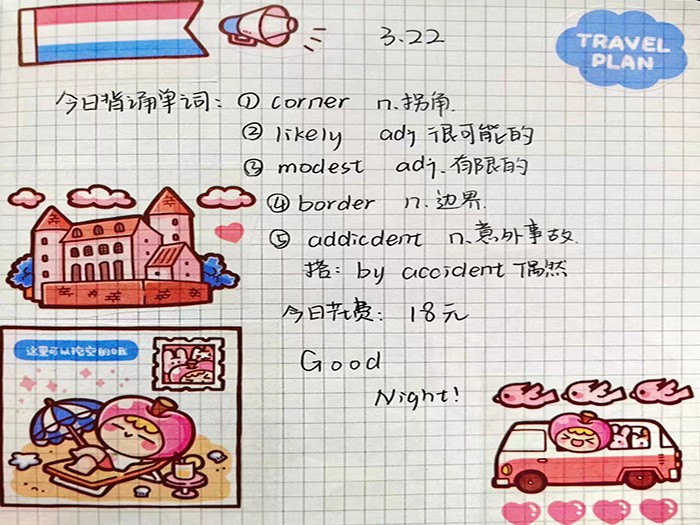 3.22
TRAVEL
PLAN
今日背诵单词: ① corner n.拐角.
② likely adj 很可能的
③ modest adj.有限的
④ border n.边界.
⑤ addicdent n.意外事故.
搭: by accident 偶然
今日花费: 18元
Good
Night!
这里可以挖空的哦